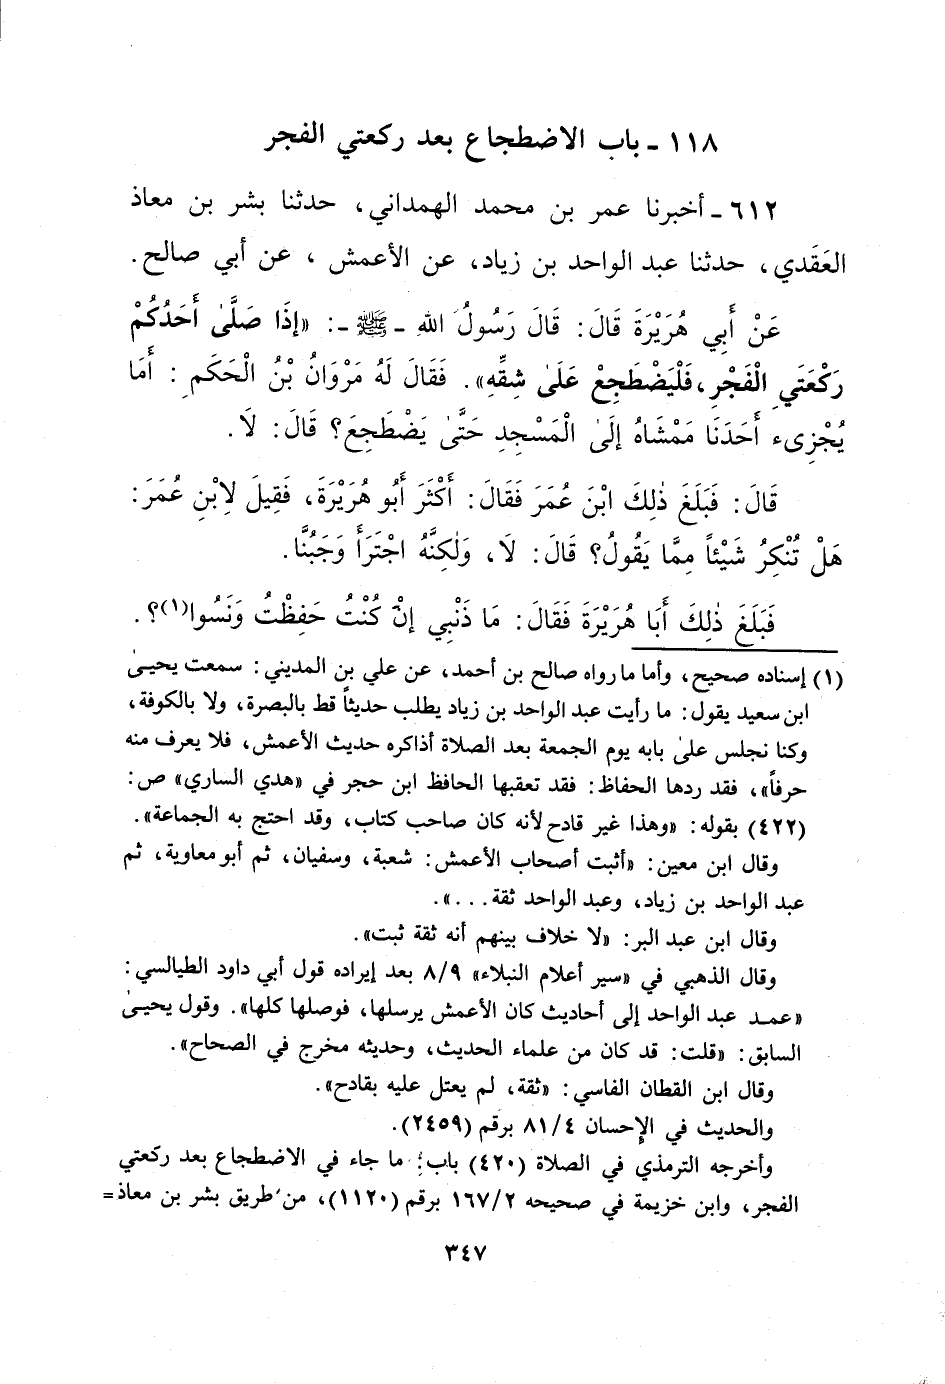 ١١٨ - باب الاضطجاع بعد ركعتي الفجر
٦١٢ - أخبرنا عمر بن محمد الهمداني، حدثنا بشر بن معاذ
العَقَدي، حدثنا عبد الواحد بن زياد، عن الأعمش ، عن أبي صالح.
عَنْ أَبِي هُرَيْرَةَ قَالَ: قَالَ رَسُولُ اللهِ - ﷺ -: «إِذَا صَلَّىٰ أَحَدُكُمْ
رَكْعَتَيِ الْفَجْرِ، فَلْيَضْطَجِعْ عَلَىٰ شِقِّهِ». فَقَالَ لَهُ مَرْوَانُ بْنُ الْحَكَمِ : أَمَا
يُجْزِىء أَحَدَنَا مَمْشَاهُ إِلَىٰ الْمَسْجِدِ حَتَّىٰ يَضْطَجِعَ؟ قَالَ: لَا.
قَالَ: فَبَلَغَ ذٰلِكَ ابْنَ عُمَرَ فَقَالَ: أَكْثَرَ أَبُو هُرَيْرَةَ، فَقِيلَ لِابْنِ عُمَرَ:
هَلْ تُنْكِرُ شَيْئاً مِمَّا يَقُولُ؟ قَالَ: لَا، وَلٰكِنَّهُ اجْتَرَأَ وَجَبُنَّا.
فَبَلَغَ ذٰلِكَ أَبَا هُرَيْرَةَ فَقَالَ: مَا ذَنْبِي إِنْ كُنْتُ حَفِظْتُ وَنَسُوا(١)؟.
(١) إسناده صحيح، وأما ما رواه صالح بن أحمد، عن علي بن المديني: سمعت يحيىٰ
ابن سعيد يقول: ما رأيت عبد الواحد بن زياد يطلب حديثاً قط بالبصرة، ولا بالكوفة،
وكنا نجلس علىٰ بابه يوم الجمعة بعد الصلاة أذاكره حديث الأعمش، فلا يعرف منه
حرفاً»، فقد ردها الحفاظ: فقد تعقبها الحافظ ابن حجر في «هدي الساري» ص:
(٤٢٢) بقوله: «وهذا غير قادح لأنه كان صاحب كتاب، وقد احتج به الجماعة».
وقال ابن معين: «أثبت أصحاب الأعمش: شعبة، وسفيان، ثم أبو معاوية، ثم
عبد الواحد بن زياد، وعبد الواحد ثقة...».
وقال ابن عبد البر: «لا خلاف بينهم أنه ثقة ثبت».
وقال الذهبي في «سير أعلام النبلاء» ٨/٩ بعد إيراده قول أبي داود الطيالسي:
«عمد عبد الواحد إلى أحاديث كان الأعمش يرسلها، فوصلها كلها». وقول يحيىٰ
السابق: «قلت: قد كان من علماء الحديث، وحديثه مخرج في الصحاح».
وقال ابن القطان الفاسي: «ثقة، لم يعتل عليه بقادح».
والحديث في الإحسان ٨١/٤ برقم (٢٤٥٩).
وأخرجه الترمذي في الصلاة (٤٢٠) باب: ما جاء في الاضطجاع بعد ركعتي
الفجر، وابن خزيمة في صحيحه ١٦٧/٢ برقم (١١٢٠)، من طريق بشر بن معاذ=
٣٤٧